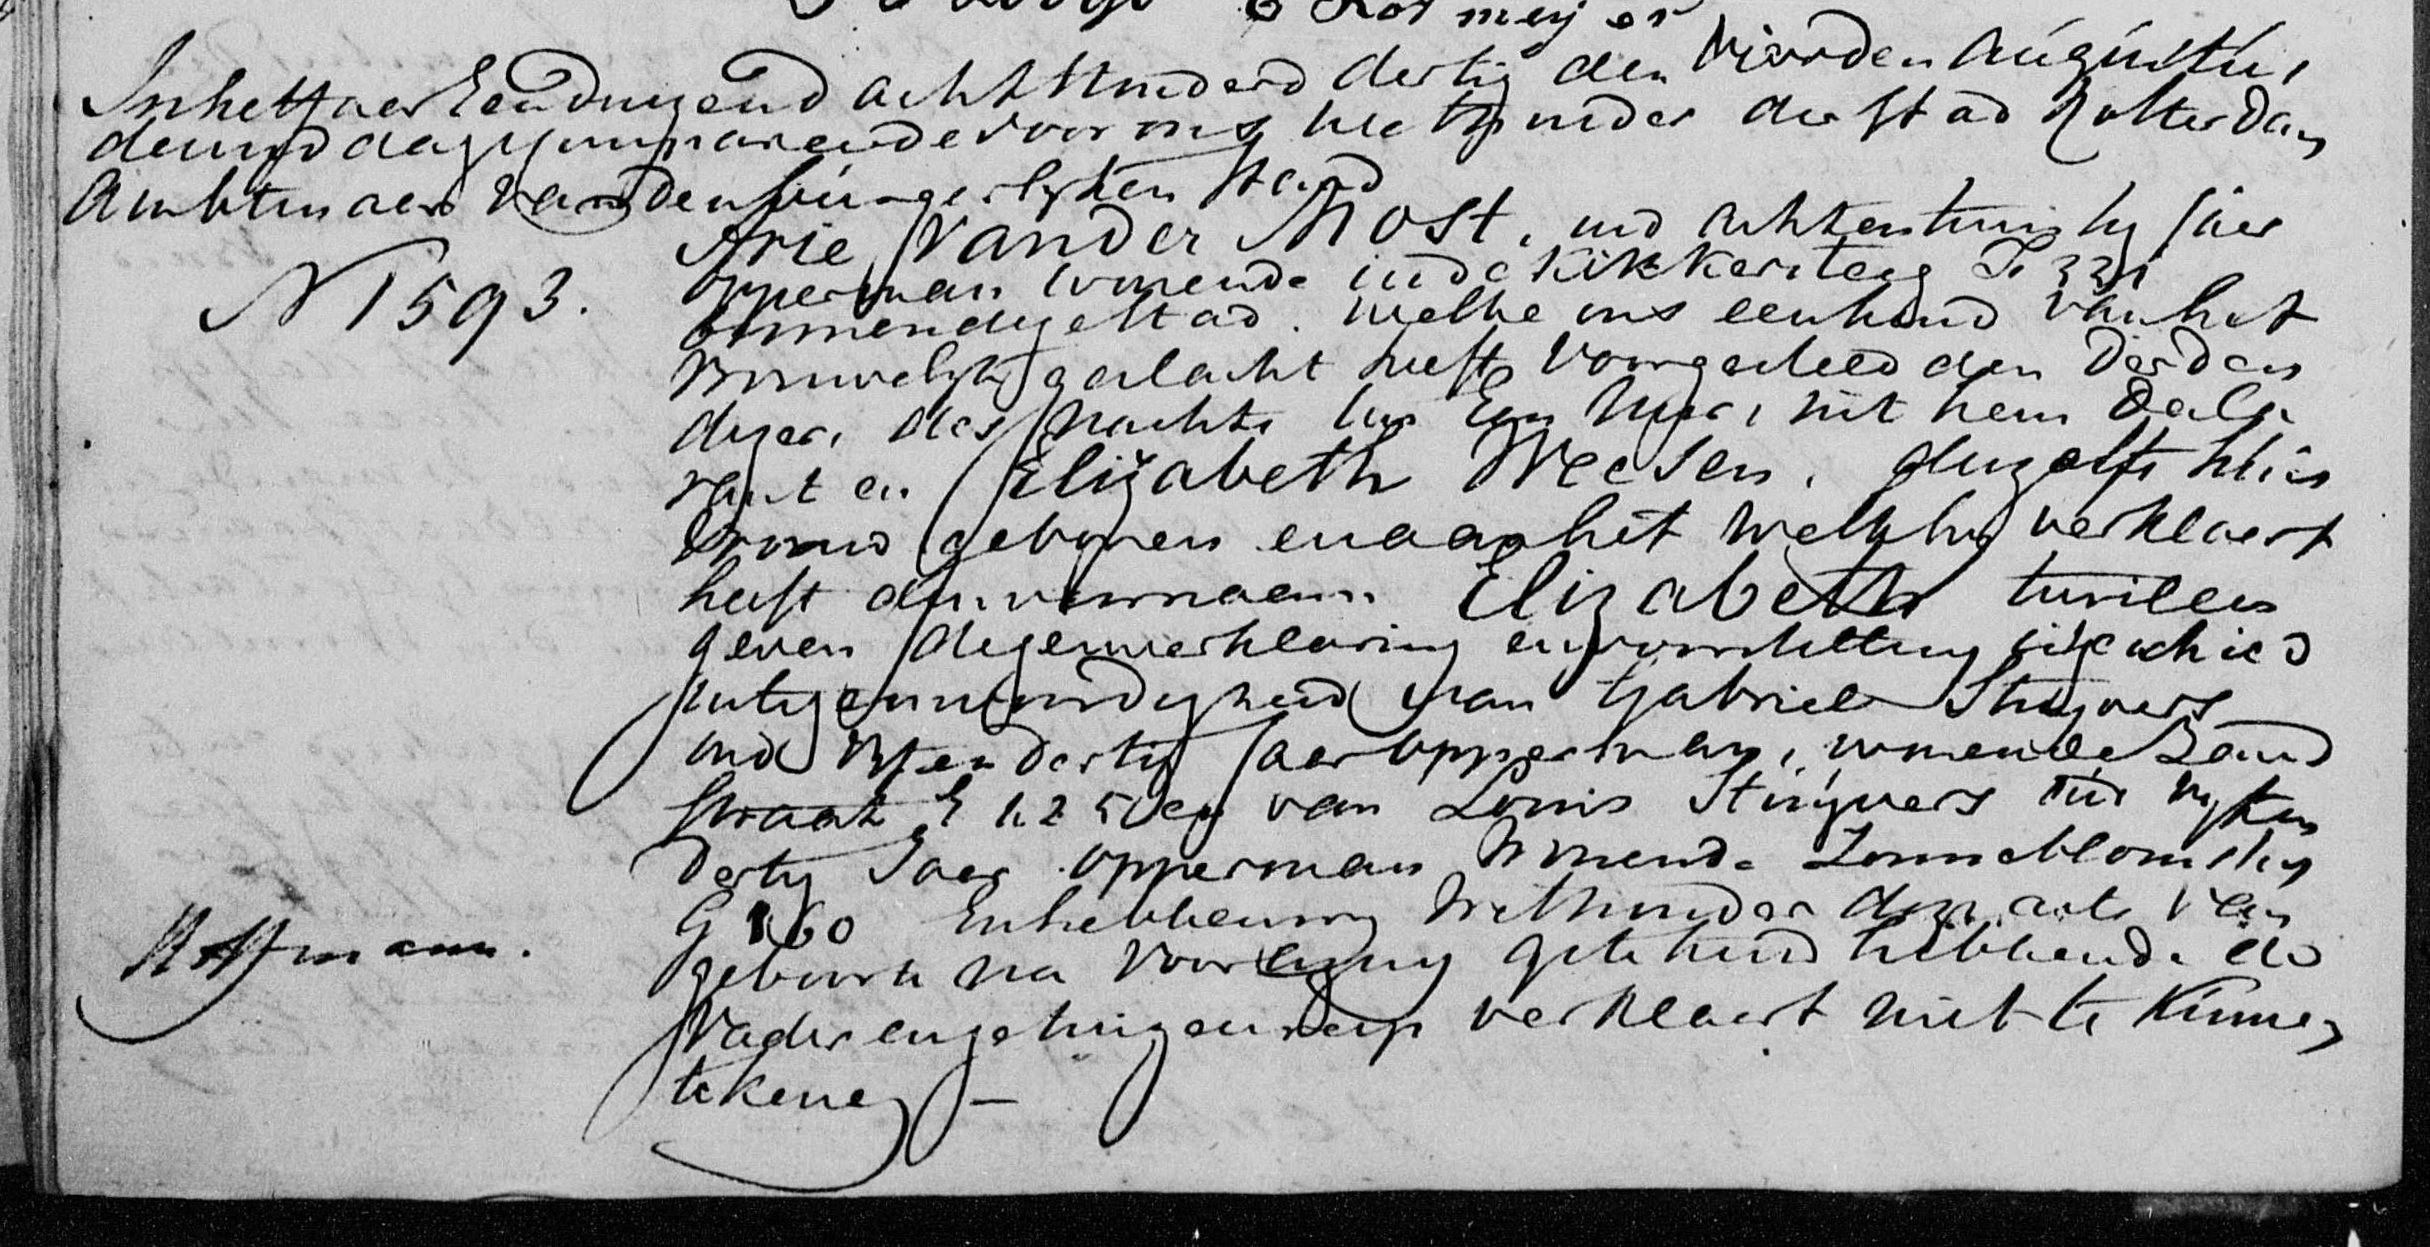 Kotmeyer
In het Jaer Eenduyzend achthonderd dertig den Vierden Augustus
dezes dags compareerde voor ons wethouder der stad Rotterdam
Ambtenaer van den burgerlyken stand
Arie van der Most, oud achtentwintig Jaer
N 1593.
opperman wonende in de Kikkersteeg
binnen deze stad. welke ons een kind van het
vrouwelyk geslacht heeft voorgesteld den derden
dezer, des nachts ten Een Uure, uit hem Decla
rant en Elizabeth Weesen, deszelfs huis
vrouw geboren en aan het welk hy verklaert
heeft den voornaem Elizabeth te willen
geven deze verklaring en voorstelling is geschied
in tegenwoordigheid van Gabriel Stuyvers
oud Vyfendertig Jaer opperman, wonende Zand
straat E 125 en van Louis Stuyvers oud vyfen
dertig Jaer opperman wonende Zonnebloemsteeg
G 160 En hebben wy wethouder deze acte van
geboorte na voorlezing getekend hebbende de
Vader en getuigen verklaert niet te kunnen
tekenen –
Hoffmann.